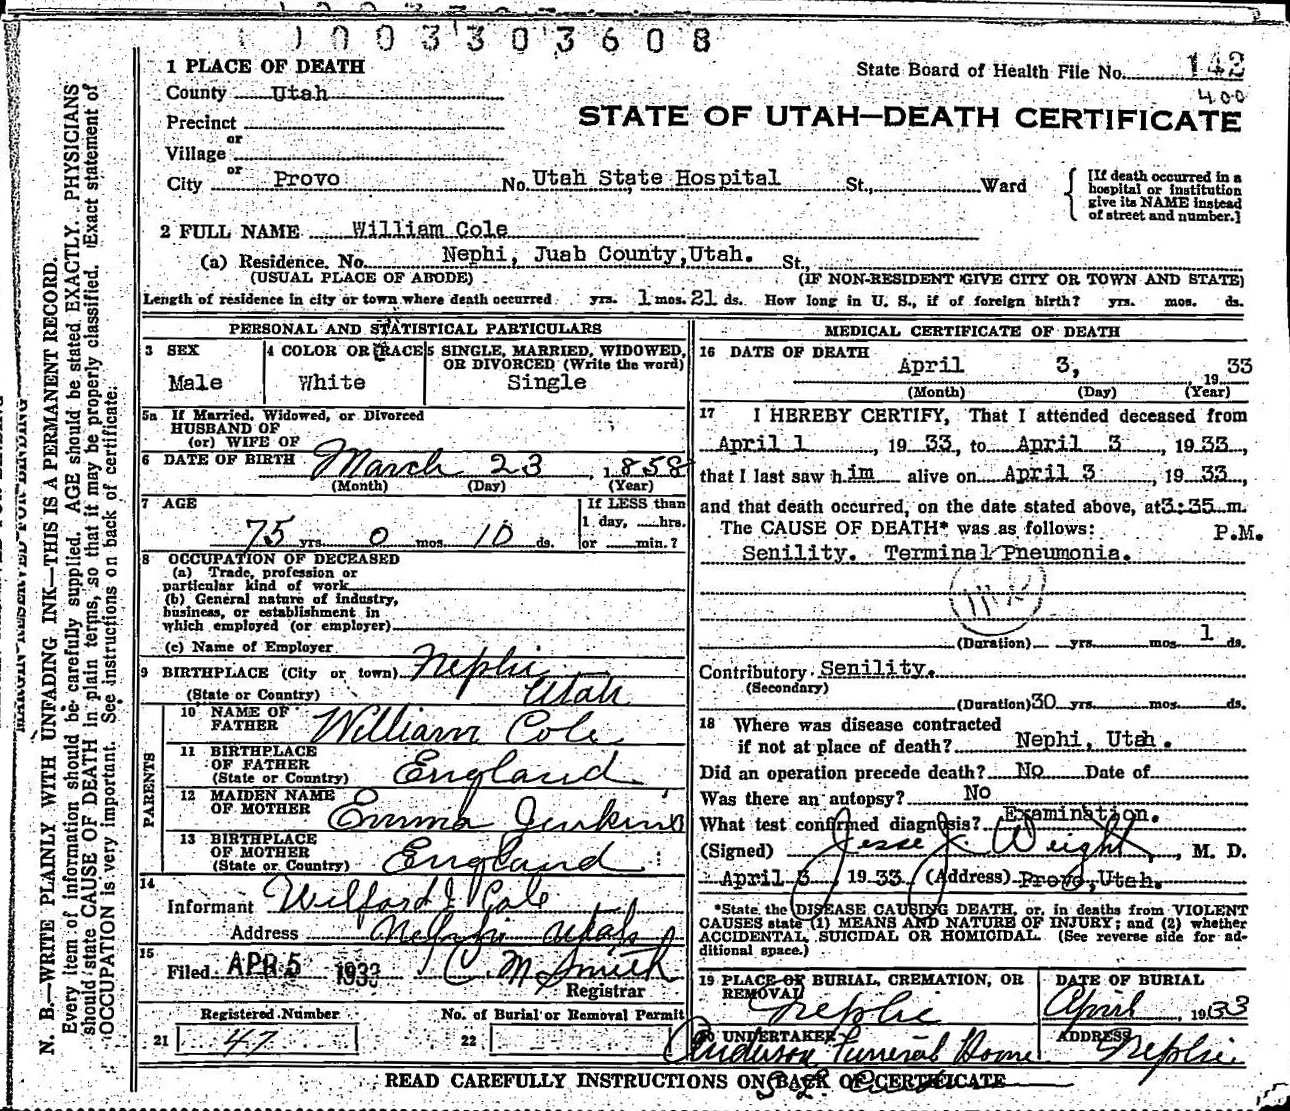 1003303608
1 PLACE OF DEATH
State Board of Health File No. 142
County Utah
400
STATE OF UTAH—DEATH CERTIFICATE
Precinct
or
Village
or
City Provo No. Utah State Hospital St., Ward
[If death occurred in a
hospital or institution
give its NAME instead
of street and number.]
2 FULL NAME William Cole
(a) Residence. No. Nephi, Juab County, Utah. St.,
(USUAL PLACE OF ABODE) (IF NON-RESIDENT GIVE CITY OR TOWN AND STATE)
Length of residence in city or town where death occurred yrs. 1 mos. 21 ds. How long in U. S., if of foreign birth? yrs. mos. ds.
PERSONAL AND STATISTICAL PARTICULARS
3 SEX
Male
4 COLOR OR RACE
White
5 SINGLE, MARRIED, WIDOWED,
OR DIVORCED (Write the word)
Single
5a If Married, Widowed, or Divorced
HUSBAND OF
(or) WIFE OF
6 DATE OF BIRTH March 23, 1858
(Month) (Day) (Year)
7 AGE
75 yrs. 0 mos. 10 ds.
If LESS than
1 day, hrs.
or min.?
8 OCCUPATION OF DECEASED
(a) Trade, profession or
particular kind of work
(b) General nature of industry,
business, or establishment in
which employed (or employer)
(c) Name of Employer
9 BIRTHPLACE (City or town) Nephi
(State or Country) Utah
PARENTS
10 NAME OF
FATHER William Cole
11 BIRTHPLACE
OF FATHER
(State or Country) England
12 MAIDEN NAME
OF MOTHER Emma Jenkins
13 BIRTHPLACE
OF MOTHER
(State or Country) England
14
Informant Wilford J. Cole
Address Nephi Utah
15
Filed APR 5 1933 C. M. Smith
Registrar
Registered Number
21 47
No. of Burial or Removal Permit
22
MEDICAL CERTIFICATE OF DEATH
16 DATE OF DEATH
April 3, 1933
(Month) (Day) (Year)
17 I HEREBY CERTIFY, That I attended deceased from
April 1, 1933, to April 3, 1933,
that I last saw him alive on April 3, 1933,
and that death occurred, on the date stated above, at 3:35 m.
The CAUSE OF DEATH* was as follows: P.M.
Senility. Terminal Pneumonia.
(Duration) yrs. mos. 1 ds.
Contributory Senility.
(Secondary)
(Duration) 30 yrs. mos. ds.
18 Where was disease contracted
if not at place of death? Nephi, Utah.
Did an operation precede death? No Date of
Was there an autopsy? No
What test confirmed diagnosis? Examination.
(Signed) Jesse J. Weight, M. D.
April 3, 1933 (Address) Provo, Utah.
*State the DISEASE CAUSING DEATH, or, in deaths from VIOLENT
CAUSES state (1) MEANS AND NATURE OF INJURY; and (2) whether
ACCIDENTAL, SUICIDAL OR HOMICIDAL. (See reverse side for ad-
ditional space.)
19 PLACE OF BURIAL, CREMATION, OR
REMOVAL Nephi
DATE OF BURIAL
April, 1933
20 UNDERTAKER
Anderson Funeral Home
ADDRESS Nephi
READ CAREFULLY INSTRUCTIONS ON BACK OF CERTIFICATE
MARGIN RESERVED FOR BINDING
N. B.—WRITE PLAINLY WITH UNFADING INK—THIS IS A PERMANENT RECORD.
Every item of information should be carefully supplied. AGE should be stated EXACTLY. PHYSICIANS
should state CAUSE OF DEATH in plain terms, so that it may be properly classified. Exact statement of
OCCUPATION is very important. See instructions on back of certificate.